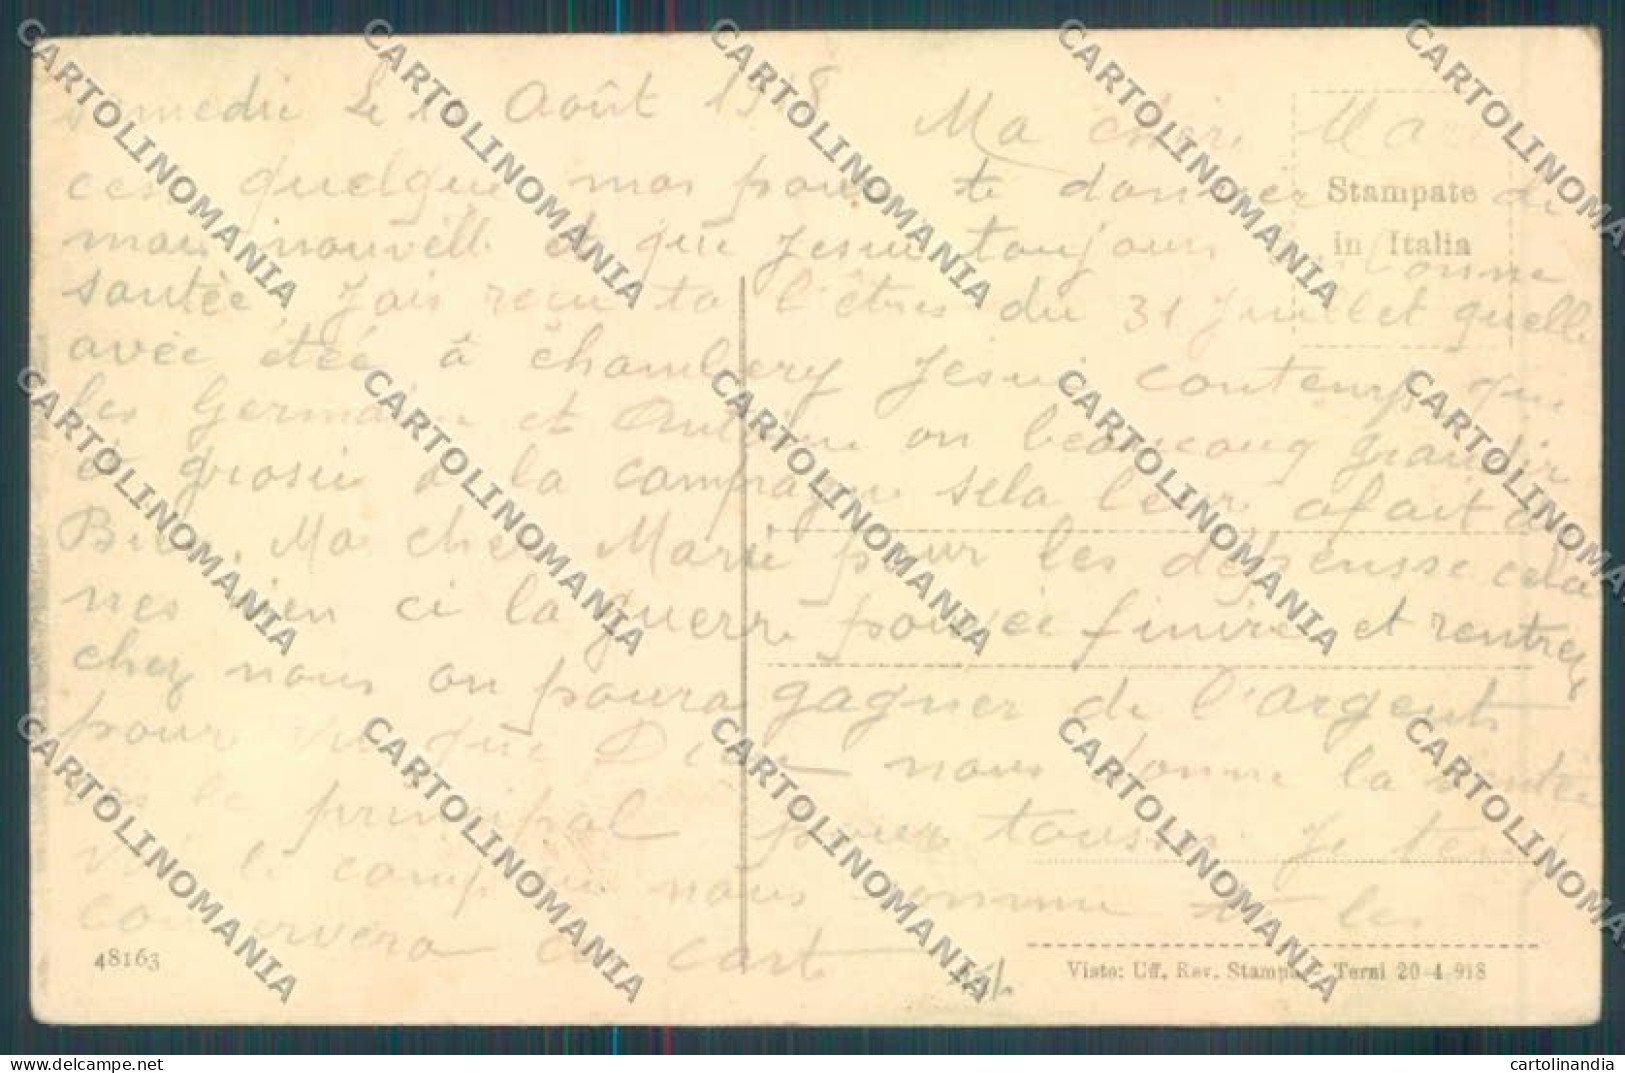 samedi Le 10 Août 1918 Ma cher Marie
ces quelque mos pour te donner de
mon nouvelle et que Jesui toujour bonne
santée Jais recu ta l'êtres du 31 Juillet quelle
avée étée à chambery Jesui contemp que
les Germaine et Antoine on beaucoug grandir
et grosir à la campagne sela leur afait du
Bien. Ma cher Marie pour les dépensse cela
nes rien ci la guerre pouvée finire et rentrer
chez nous on poura gagner de l'argent
pour vu que Dieu nous donne la santée
ces le principal pour tousse Je ten
le nous comme les
conservera ce cart
Stampate
in Italia
48163
Visto: Uff. Rev. Stampa - Terni 20-4-918
CARTOLINOMANIA
cartolinandia
delcampe.net